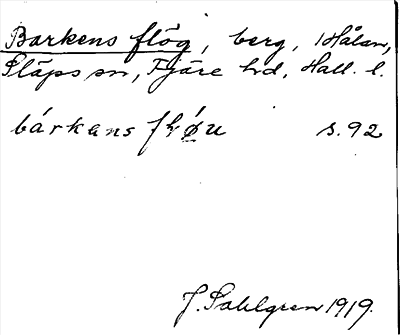 Barkens flög, berg, Hålan,
Släps sn, Fjäre hd, Hall. l.
bárkans s. 92
J. Sahlgren 1919.